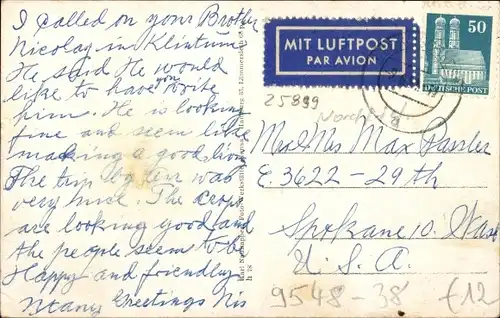 I called on your Brother
Nicolay in Klintum
He said He would
like to have you write
him. He is looking
fine and seem like
making a good living
The trip here was
very nice. The crops
are looking good and
the people seem to be
Happy and friendly
Many Greetings Nis
MIT LUFTPOST
PAR AVION
50
DEUTSCHE POST
25899
Mr and Mrs Max
E. 3622 - 29th
Spokane 10. Wash
U. S. A.
9548-38
€12